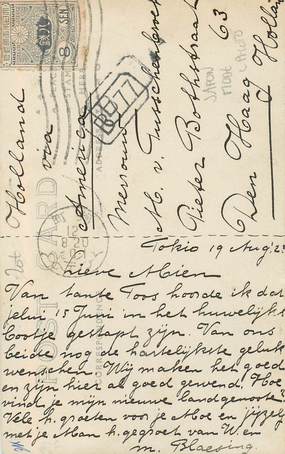 8 SEN
Holland
via
America
Mevrouw
M. v.
Pieter Bothstraat
63
Den Haag
Holland
Tokio 19 Aug '2
Lieve Mien
Van tante Toos hoorde ik dat
jelui 15 Juni in het huwelijks
bootje gestapt zijn. Van ons
beide nog de hartelijkste geluk
wenschen. Wij maken het goed
en zijn hier al goed gewend. Hoe
vind je mijn nieuwe landgenoote?
Vele h. groeten voor je Moe en jijzelf
met je Man h. gegroet van W. en
M. Blaesing.